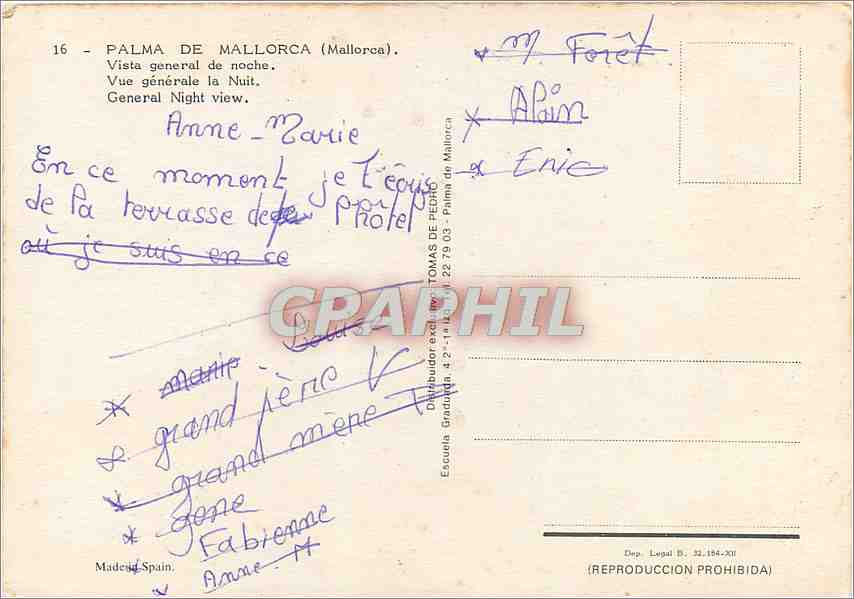 16 - PALMA DE MALLORCA (Mallorca).
Vista general de noche.
Vue générale la Nuit.
General Night view.
Anne-Marie
En ce moment je t'écris
de la terrasse de l'hôtel
où je suis en ce
Marie-Louise
grand père
grand mère
gene
Fabienne
Anne. M
Made in Spain.
Distribuidor exclusivo: TOMAS DE PEDRO
Escuela Graduada, 4 2°-1ª Tel. 22 79 03 - Palma de Mallorca
M. Forêt
Alain
Eric
CPAPHIL
Dep. Legal B. 32.184-XII
(REPRODUCCION PROHIBIDA)